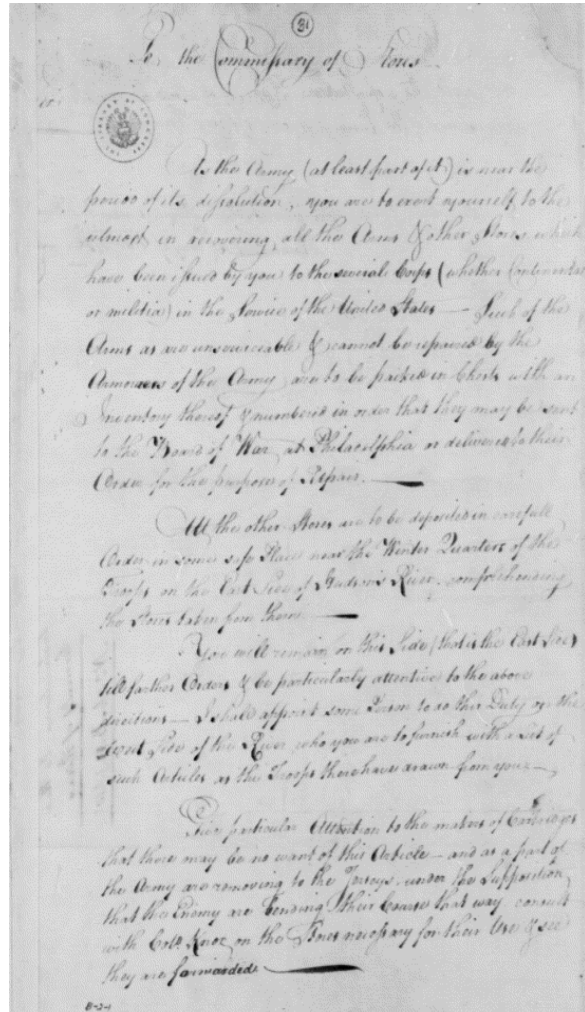 31
To the Commissary of Stores
As the Army (at least part of it) is near the
period of its dissolution, you are to exert yourself to the
utmost in recovering all the Arms & other Stores which
have been issued by you to the severale Corps (whether Continental
or militia) in the Service of the United States — Such of the
Arms as are unserviceable & cannot be repaired by the
Armourers of the Army are to be packed in Chests with an
Inventory thereof & numbered in order that they may be sent
to the Board of War at Philadelphia or delivered to their
Order for the purpose of Repair. —
All the other Stores are to be deposited in carefull
Order in some safe Place near the Winter Quarters of the
Troops on the East Side of Hudson's River, comprehending
the Stores taken from them —
You will remain on this Side (that is the East Side)
till farther Orders & be particularly attentive to the above
directions — I shall appoint some Person to do this Duty on the
West Side of the River who you are to furnish with a List of
such Articles as the Troops there have drawn from you —
Give particular Attention to the makers of Cartridges
that there may be no want of this Article — and as a part of
the Army are removing to the Jerseys, under the Supposition
that the Enemy are bending their Course that way, consult
with Colo. Knox on the Stores necessary for their Use & see
they are forwarded. —
B-2-1